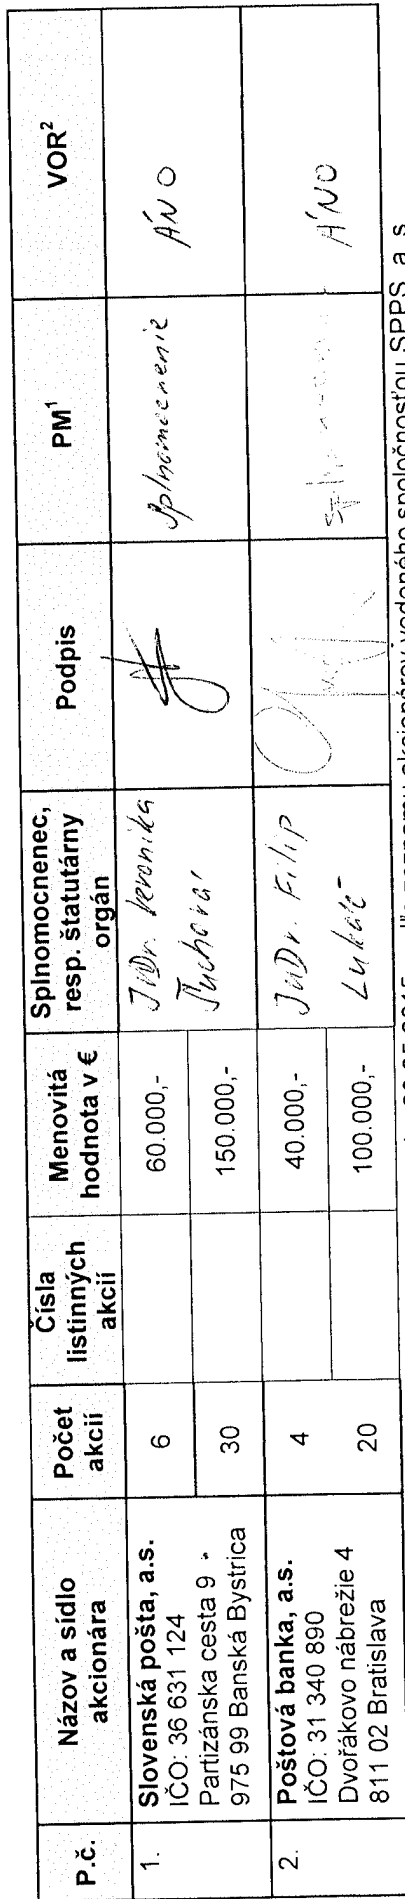 P.č.
Názov a sídlo
akcionára
Počet
akcií
Čísla
listinných
akcií
Menovitá
hodnota v €
Splnomocnenec,
resp. štatutárny
orgán
Podpis
PM1
VOR2
1.
Slovenská pošta, a.s.
IČO: 36 631 124
Partizánska cesta 9
975 99 Banská Bystrica
6
30
60.000,-
150.000,-
JUDr. Veronika
splnomocnenie
ÁNO
2.
Poštová banka, a.s.
IČO: 31 340 890
Dvořákovo nábrežie 4
811 02 Bratislava
4
20
40.000,-
100.000,-
JUDr. Filip
ÁNO
zoznamu akcionárov vedeného spoločnosťou SPPS, a. s.